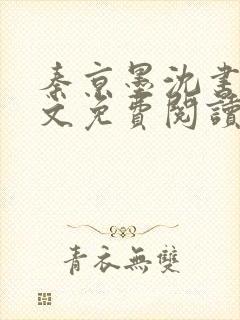 秦京墨沈書
文免費閱讀
青衣無雙